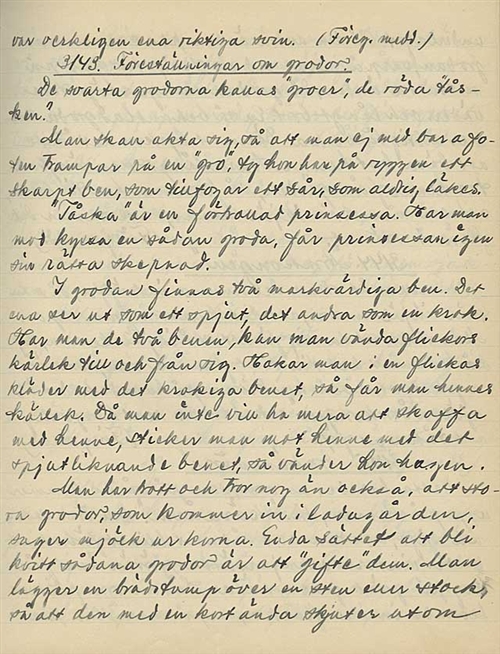 var verkligen ena riktiga svin. (Föreg. medd.)
3143. Föreställningar om grodor.
De svarta grodorna kallas "groer", de röda "tås-
ken."
Man skall akta sig, så att man ej med bara fo-
ten trampar på en "gro", ty hon har på ryggen ett
skarpt ben, som tillfogar ett sår, som aldrig läkes.
"Tåska" är en förtrollad prinsessa. Har man
mod kyssa en sådan groda, får prinsessan igen
sin rätta skepnad.
I grodan finnas två märkvärdiga ben. Det
ena ser ut som ett spjut, det andra som en krok.
Har man de två benen, kan man vända flickors
kärlek till och från sig. Hakar man i en flickas
kläder med det krokiga benet, så får man hennes
kärlek. Då man inte vill ha mera att skaffa
med henne, sticker man mot henne med det
spjutliknande benet, så vänder hon hågen.
Man har trott och tror nog än också, att sto-
ra grodor, som kommer in i ladugården,
suger mjölk ur korna. Enda sättet att bli
kvitt sådana grodor är att "gifte" dem. Man
lägger en brädstump över en sten eller stock,
så att den med en kort ända skjuter ut om